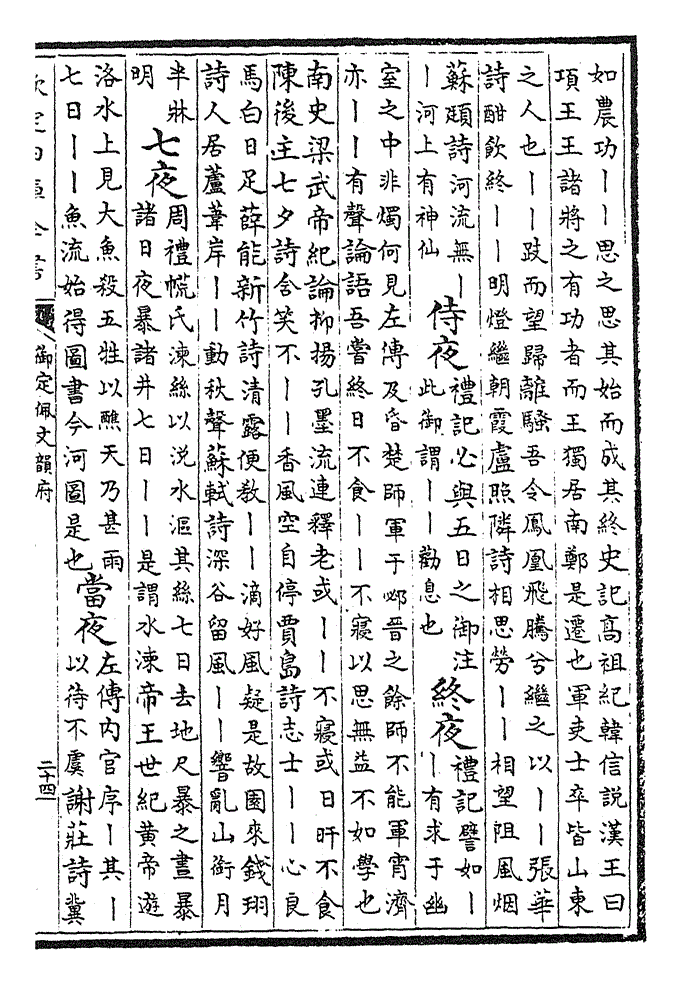 如農功丨丨思之思其始而成其終史記髙祖紀韓信説漢王曰
項王王諸將之有功者而王獨居南鄭是遷也軍吏士卒皆山東
之人也丨丨跂而望歸離騷吾令鳳凰飛騰兮繼之以丨丨張華
詩酣飲終丨丨明燈繼朝霞盧照隣詩相思勞丨丨相望阻風烟
蘇頲詩河流無丨
丨河上有神仙
侍夜
禮記必與五日之御注
此御謂丨丨勸息也
終夜
禮記譬如丨
丨有求于幽
室之中非燭何見左傳及昏楚師軍于邲晉之餘師不能軍宵濟
亦丨丨有聲論語吾嘗終日不食丨丨不寢以思無益不如學也
南史梁武帝紀論抑揚孔墨流連釋老或丨丨不寢或日旰不食
陳後主七夕詩含笑不丨丨香風空自停賈島詩志士丨丨心良
馬白日足薛能新竹詩清露便教丨丨滴好風疑是故園來錢珝
詩人居蘆葦岸丨丨動秋聲蘇軾詩深谷留風丨丨響亂山銜月
半牀
明
七夜
周禮㡛氏湅絲以涚水漚其絲七日去地尺暴之晝暴
諸日夜暴諸井七日丨丨是謂水湅帝王世紀黄帝遊
洛水上見大魚殺五牲以醮天乃甚雨
七日丨丨魚流始得圖書今河圖是也
當夜
左傳内官序丨其丨
以待不虞謝莊詩冀
欽定四庫全書
御定佩文韻府
二十四